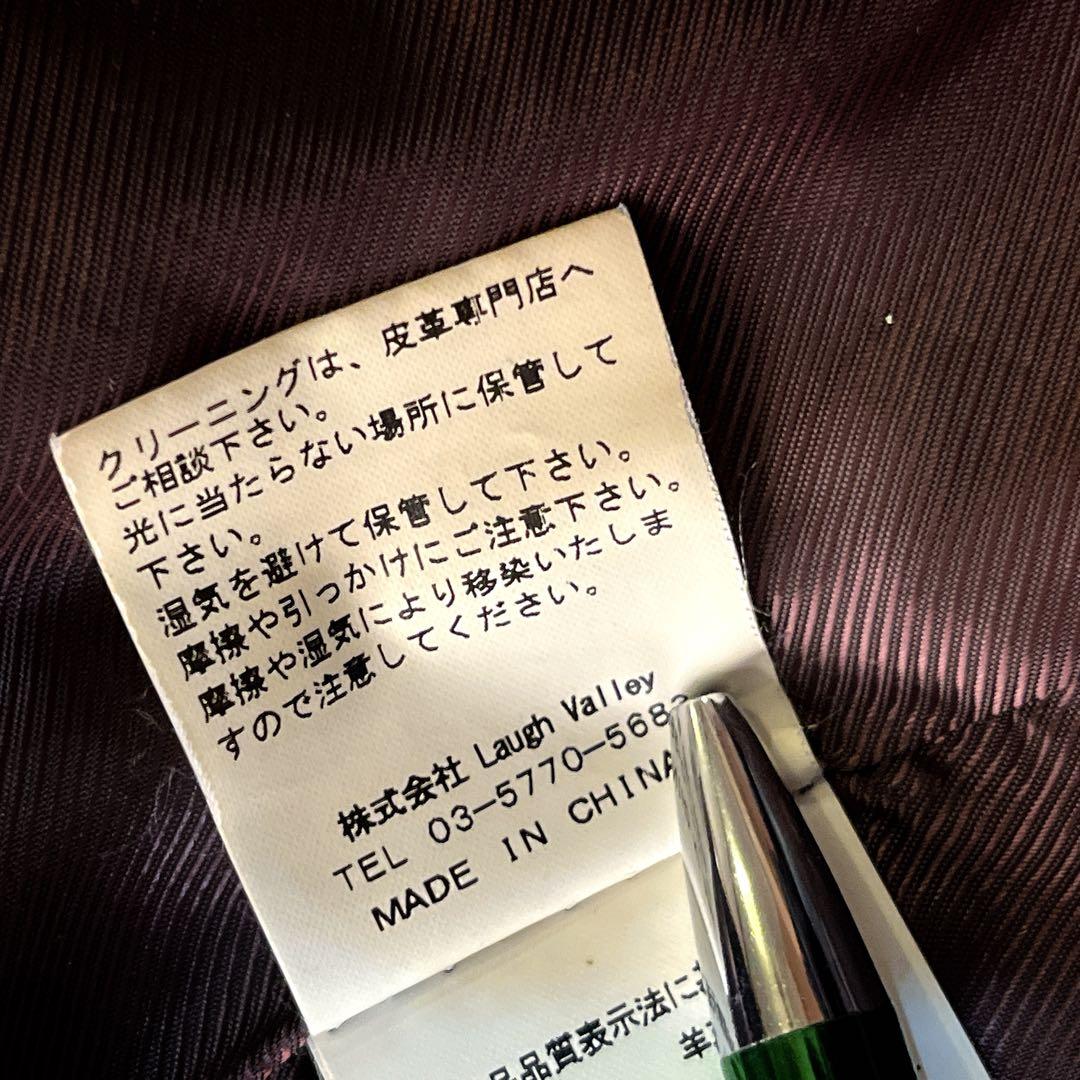 クリーニングは、皮革専門店へ
ご相談下さい。
光に当たらない場所に保管して
下さい。
湿気を避けて保管して下さい。
摩擦や引っかけにご注意下さい。
摩擦や湿気により移染いたしま
すので注意してください。
株式会社 Laugh Valley
TEL 03-5770-568
MADE IN CHINA
品質表示法に
羊